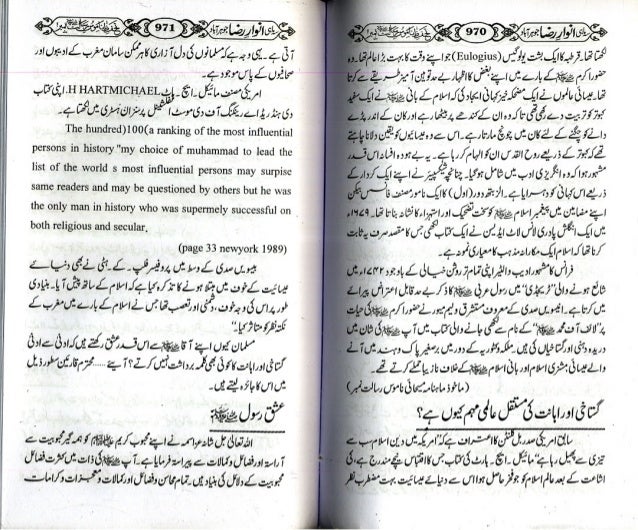 سہ ماہی انوارِ رضا جوہر آباد 970
لکھتا تھا۔ قرطبہ کا ایک بشپ یولوگیس (Eulogius) جو اپنے وقت کا بہت بڑا عالم تھا۔ وہ
حضور اکرم ﷺ کے بارے میں اپنے بغض کا اظہار بے حد توہین آمیز طریقے سے کرتا
تھا۔ عیسائی عالموں نے ایک مضحکہ خیز کہانی ایجاد کی کہ اسلام کے بانی ﷺ نے ایک سفید
کبوتر کو تربیت دے رکھی تھی تاکہ وہ ان کے کندھے پر بیٹھا رہے اور کان کے اندر پڑے
دانے کو چگنے کے لئے کان میں چونچ مارتا رہے۔ اس سے وہ عیسائیوں کو یقین دلانا چاہتے
تھے کہ کبوتر کے ذریعے روح القدس ان کو الہام کر رہا ہے۔ یہ بے ہودہ افسانہ اس قدر
مشہور ہوا کہ وہ انگریزی ادب میں شامل ہو گیا۔ چنانچہ شیکسپیئر نے اپنے ایک کردار کے
ذریعے اس کہانی کو دہرایا ہے۔ الزبتھ دور (اول) کا ایک نامور مصنف فانس بیکن
اپنے مضامین میں پیغمبر اسلام ﷺ کو سخت تضحیک اور استہزاء کا نشانہ بناتا تھا۔ ۱۶۷۹ء
میں ایک انگلش پادری لانس لاٹ ایڈیسن نے ایک کتاب لکھی جس کا مقصد صرف یہ ثابت
کرنا تھا کہ اسلام ایک مکارانہ مذہب کا معیاری نمونہ ہے۔
فرانس کا مشہور ادیب والٹیر اپنی تمام تر روشن خیالی کے باوجود ۱۷۴۲ء میں
شائع ہونے والی "ٹریجڈی" میں رسول عربی ﷺ کا ذکر بے حد قابل اعتراض پیرائے
میں کرتا ہے۔ انیسویں صدی کے معروف مستشرق ولیم میور نے حضور اکرم ﷺ کی حیات
پر "لائف آف محمد ﷺ" کے نام سے لکھی جانے والی کتاب میں آپ ﷺ کی شان میں
دریدہ دہنی اور گستاخیاں کی ہیں۔ ملکہ وکٹوریہ کے دور میں برصغیر پاک و ہند میں آنے
والے عیسائی مشنری اسلام اور بانی اسلام ﷺ کے خلاف نازیبا حملے کرتے تھے۔
(ماخوذ ماہنامہ مسیحائی ناموس رسالت نمبر)
گستاخی اور اہانت کی مستقل عالمی مہم کیوں ہے؟
سابق امریکی صدر بل کلنٹن کا اعتراف ہے کہ "امریکہ میں دین اسلام سب سے
تیزی سے پھیل رہا ہے" مائیکل۔ ایچ۔ ہارٹ کی کتاب جس کا اقتباس نیچے مندرج ہے، کی
اشاعت کے بعد عالم اسلام کو جو فخر حاصل ہوا اس سے دنیائے عیسائیت بہت مضطرب نظر
سہ ماہی انوارِ رضا جوہر آباد 971
آتی ہے۔ یہی وجہ ہے کہ مسلمانوں کی دل آزاری کا ہر ممکن سامان مغرب کے ادیبوں اور
صحافیوں کے پاس موجود ہے۔
امریکی مصنف مائیکل۔ ایچ۔ ہارٹ H HARTMICHAEL. اپنی کتاب
دی ہنڈریڈ اے رینکنگ آف دی موسٹ انفلنشیل پرسنز ان ہسٹری میں لکھتا ہے۔
The hundred)100(a ranking of the most influential
persons in history "my choice of muhammad to lead the
list of the world s most influential persons may surpise
same readers and may be questioned by others but he was
the only man in history who was supermely successful on
both religious and secular.
(page 33 newyork 1989)
بیسویں صدی کے وسط میں پروفیسر فلپ۔ کے۔ ہٹی نے بھی دنیائے
عیسائیت کے خوف میں مبتلا ہونے کا تذکرہ کیا ہے کہ اسلام کے ساتھ پیش آیا۔ بنیادی
طور پر اس کی وجہ خوف، دشمنی اور تعصب تھا جس نے اسلام کے بارے میں مغرب کے
نکتہ نظر کو متاثر کیا۔"
مسلمان کیوں اپنے آقا ﷺ سے اس قدر عشق رکھتے ہیں کہ ادنیٰ سے ادنیٰ
گستاخی اور اہانت کا کوئی بھی کلمہ برداشت نہیں کرتے؟ آیئے ..... محترم قارئین سطور ذیل
میں اس کا جائزہ لیتے ہیں۔
عشق رسول ﷺ:
اللہ تعالیٰ جل شانہ و عم اسمہ نے اپنے محبوب کریم ﷺ کو ہمہ گیر محبوبیت سے
آراستہ اور فضائل و کمالات سے پیراستہ فرمایا ہے۔ آپ ﷺ کی ذات میں کثرت فضائل
محبوبیت کے دلائل کی بنیاد ہیں، تمام محاسن و فضائل اور کمالات و معجزات و کرامات